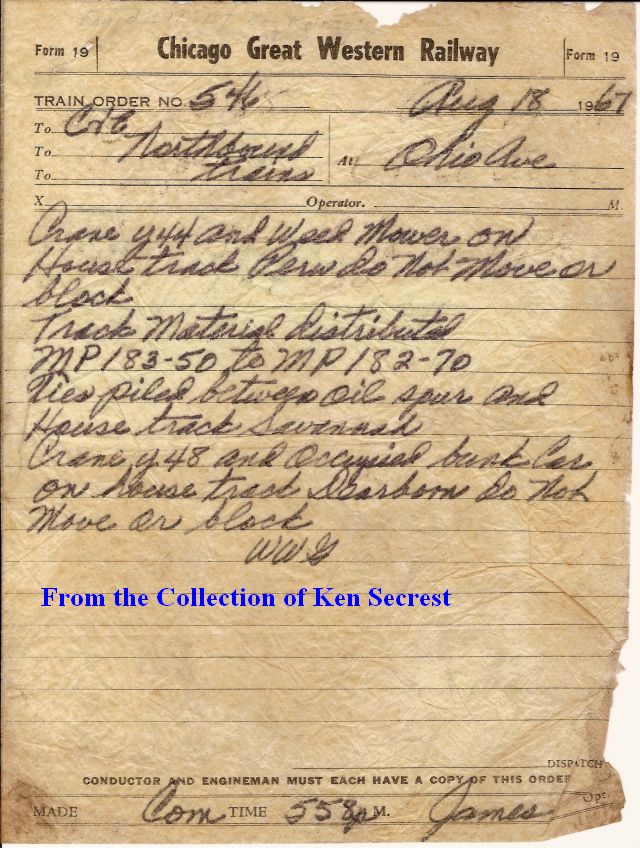 Form 19 Chicago Great Western Railway Form 19
TRAIN ORDER NO. 546 Aug 18 1967
To C&E
To Northbound
To trains
At Ohio Ave
X Operator. M
Crane Y44 and Weed Mower on
House track Peru do Not Move or
block
Track Material distributed
MP 183-50 to MP 182-70
Ties piled between oil spur and
House track Savannah
Crane Y48 and Occupied bunk Car
on house track Dearborn do Not
Move or block
WWG
From the Collection of Ken Secrest
DISPATCH
CONDUCTOR AND ENGINEMAN MUST EACH HAVE A COPY OF THIS ORDER
MADE Com TIME 558p M. James Opr.